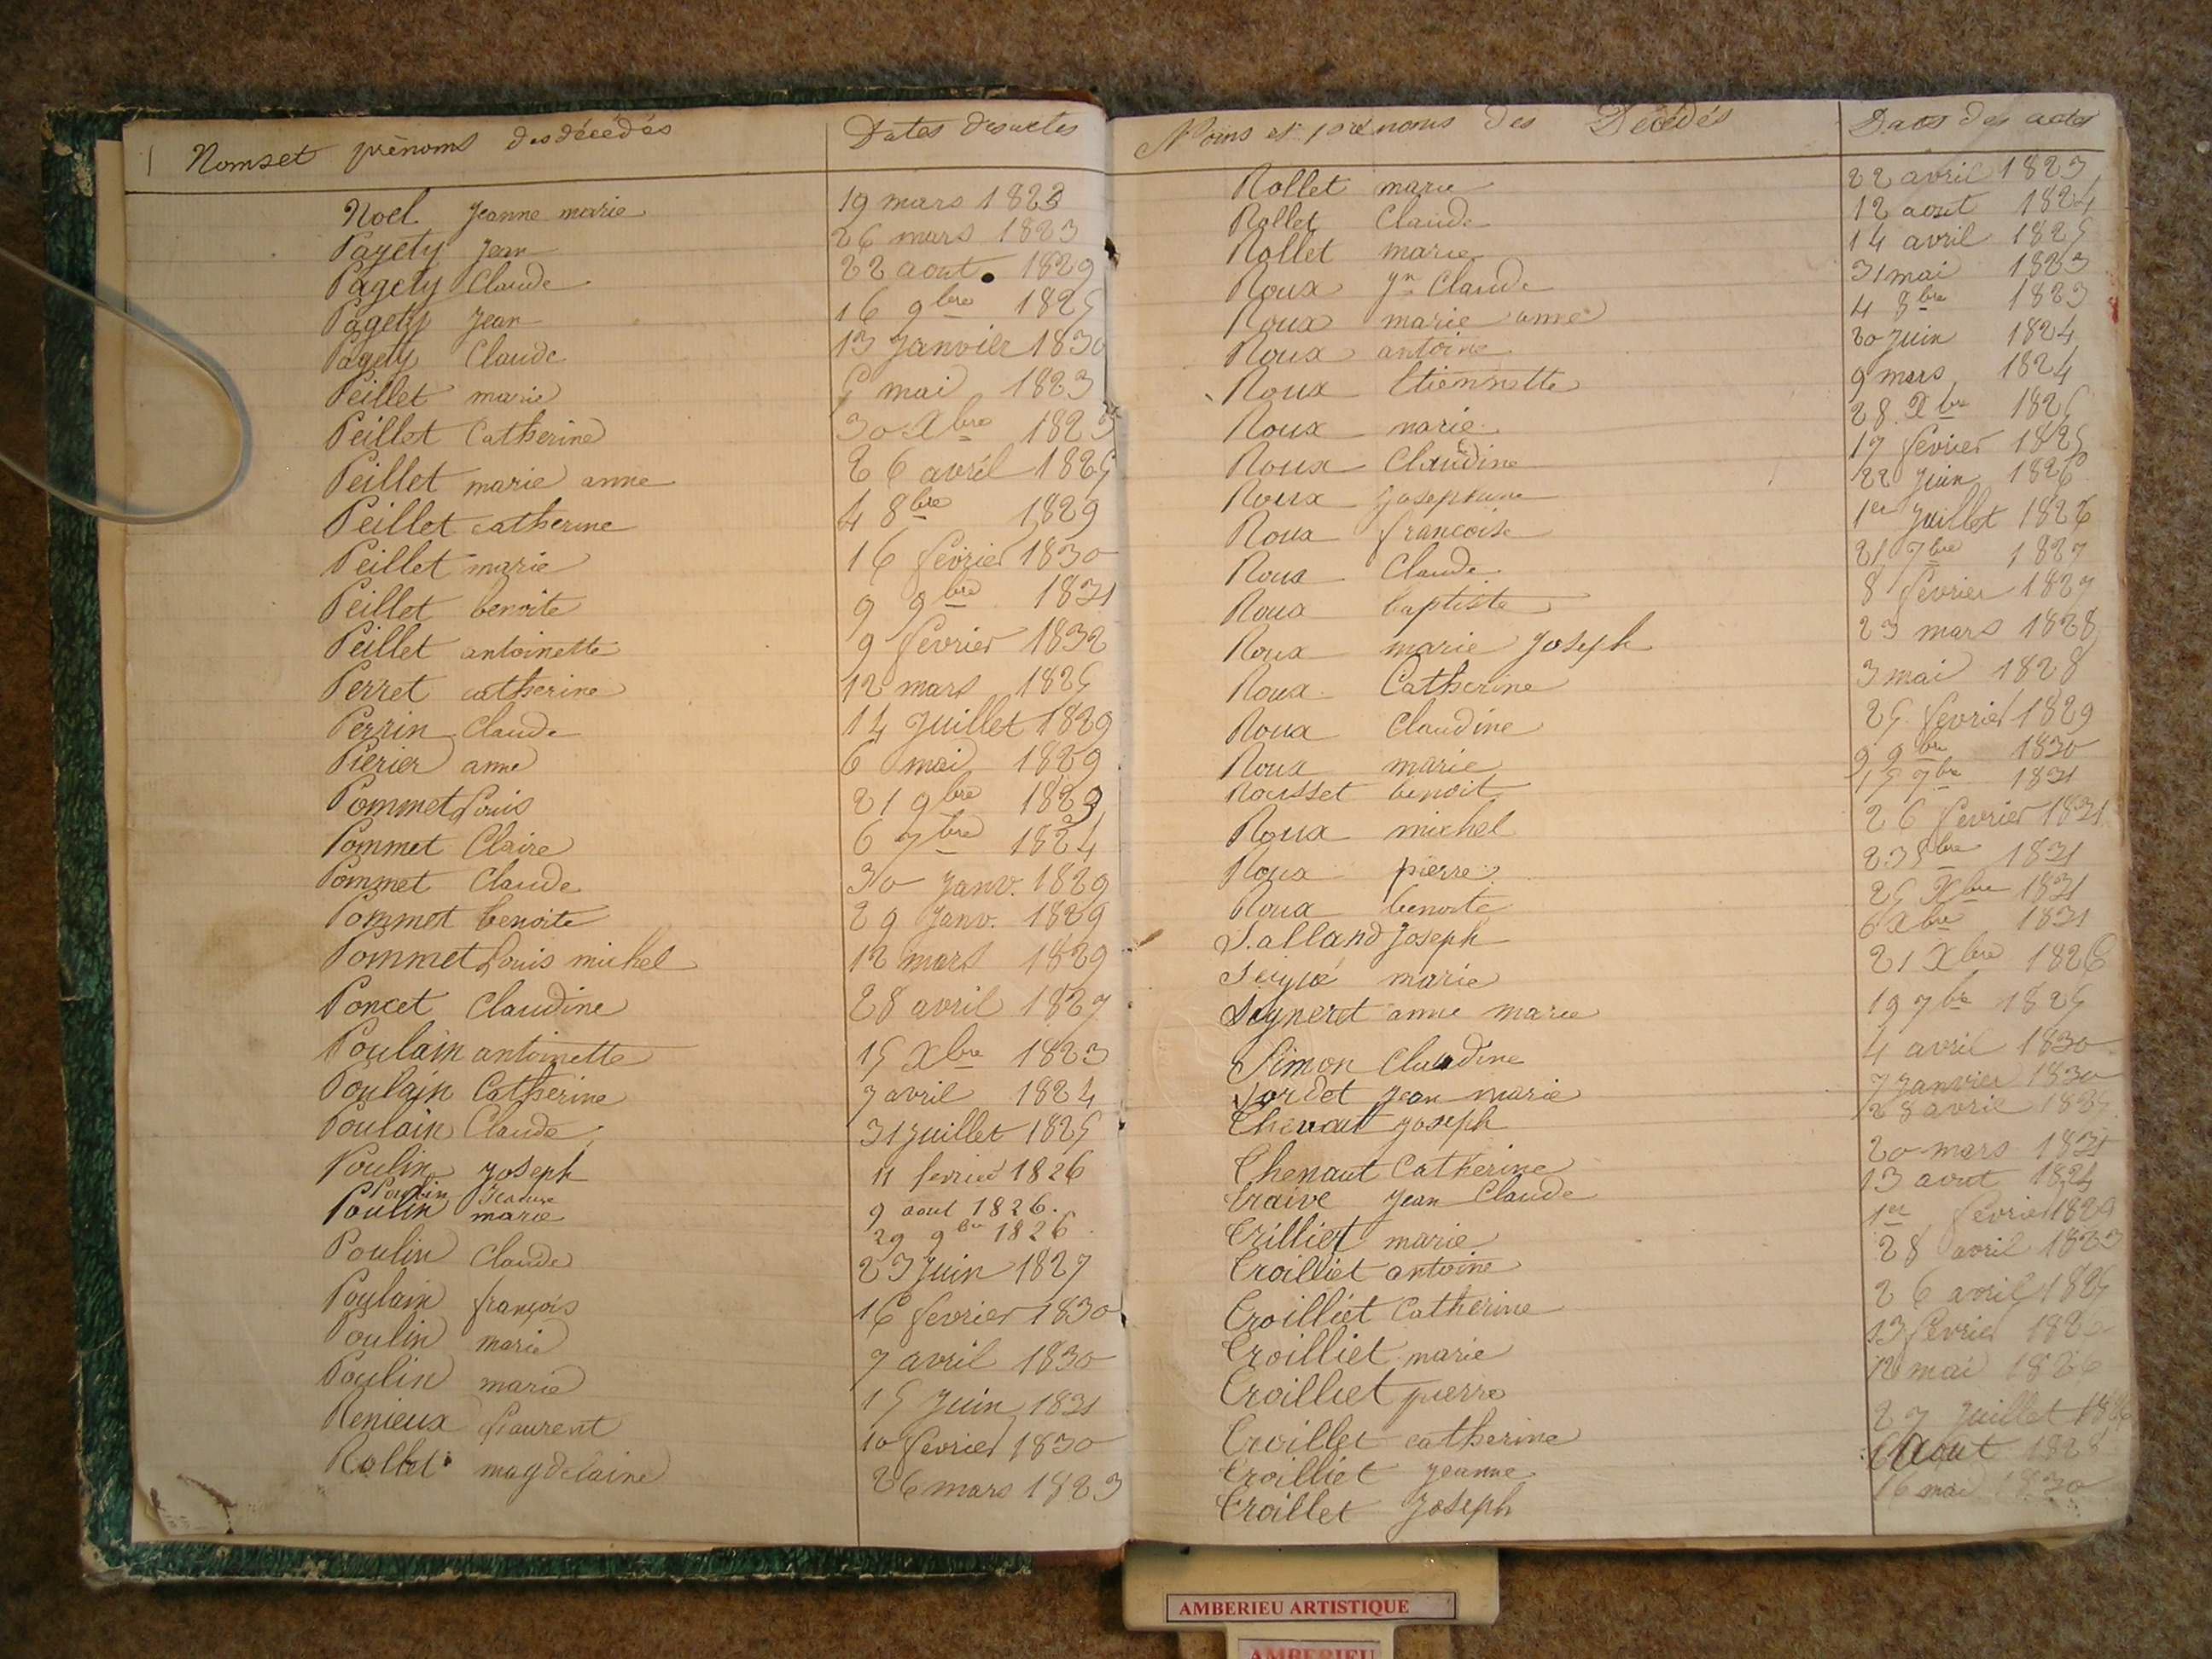 Noms et prénoms des décédés Dates des actes
Noel Jeanne marie 19 mars 1823
Pagety Jean 26 mars 1823
Pagety Claude 22 aout 1829
Pagety Jean 16 9bre 1825
Pagety Claude 13 Janvier 1830
Peillet marie 5 mai 1823
Peillet Catherine 30 Xbre 1823
Peillet marie anne 26 avril 1825
Peillet catherine 4 8bre 1829
Peillet marie 16 février 1830
Peillet benoite 9 9bre 1831
Peillet antoinette 9 fevrier 1832
Perret catherine 12 mars 1825
Perrin Claude 14 Juillet 1829
Pierier anne 6 mai 1829
Pommet Louis 21 9bre 1823
Pommet Claire 6 7bre 1824
Pommet Claude 30 Janv. 1829
Pommet benoite 29 Janv. 1829
Pommet Louis michel 12 mars 1829
Poncet Claudine 28 avril 1827
Poulain antoinette 15 Xbre 1823
Poulain Catherine 7 avril 1824
Poulain Claude 31 Juillet 1825
Poulin Joseph 11 fevrier 1826
Poulin Jeanne 9 aout 1826.
Poulin marie 29 9bre 1826
Poulin Claude 23 Juin 1827
Poulain françois 16 fevrier 1830
Poulin marie 7 avril 1830
Poulin marie 15 Juin 1831
Renieux Laurent 10 fevrier 1830
Rollet magdelaine 26 mars 1823
Noms et prénoms des Décédés Dates des actes
Rollet marie 22 avril 1823
Rollet Claude 12 aout 1824
Rollet marie 14 avril 1825
Roux Jn Claude 31 mai 1823
Roux marie anne 4 8bre 1823
Roux antoine 20 Juin 1824
Roux Etiennette 9 mars 1824
Roux marie 28 Xbre 1825
Roux Claudine 17 fevrier 1825
Roux Josephine 22 Juin 1826
Roux francoise 1er Juillet 1826
Roux Claude 21 7bre 1827
Roux baptiste 8 fevrier 1827
Roux marie Joseph 23 mars 1828
Roux Catherine 3 mai 1828
Roux Claudine 25 fevrier 1829
Roux marie 9 9bre 1830
Rousset benoit 15 7bre 1831
Roux michel 26 fevrier 1831
Roux pierre 1831
Roux benoite 25 Xbre 1831
Salland Joseph 6 Xbre 1831
marie 21 Xbre 1826
Seyneret anne marie 19 7bre 1825
Simon Claudine 4 avril 1830
Sordet Jean marie 7 Janvier 1830
Joseph 28 avril
Chenaut Catherine 20 mars 1831
Traive Jean Claude 13 aout 1824
Trilliet marie 1er fevrier 1829
Troilliet antoine 28 avril 1823
Troilliet Catherine 26 avril 1825
Troilliet marie 13 fevrier
Troilliet pierre 12 mai 1826
Troillet catherine 27 Juillet
Troilliet Jeanne Aout 1828
Troillet Joseph 16 mai 1830
AMBERIEU ARTISTIQUE
AMBERIEU